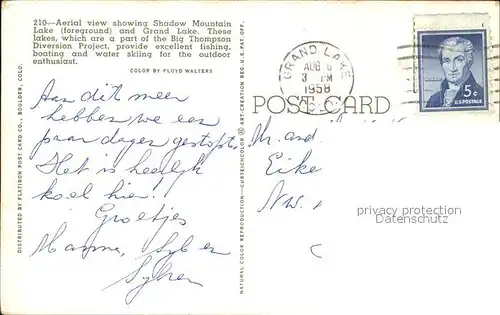 210—Aerial view showing Shadow Mountain
Lake (foreground) and Grand Lake. These
lakes, which are a part of the Big Thompson
Diversion Project, provide excellent fishing,
boating and water skiing for the outdoor
enthusiast.
COLOR BY FLOYD WALTERS
Aan dit meer
hebben we een
paar dagen gestopt.
Het is heerlijk
koel hier!
Groetjes
Hanna, Syb en
Sylvia
DISTRIBUTED BY FLATIRON POST CARD CO., BOULDER, COLO.
NATURAL COLOR REPRODUCTION—CURTEICHCOLOR ® ART-CREATION REG. U.S. PAT. OFF.
GRAND LAKE
AUG
3 PM
1958
POST CARD
5¢
U.S. POSTAGE
Mr. and
Eike
N.W.
privacy protection
Datenschutz